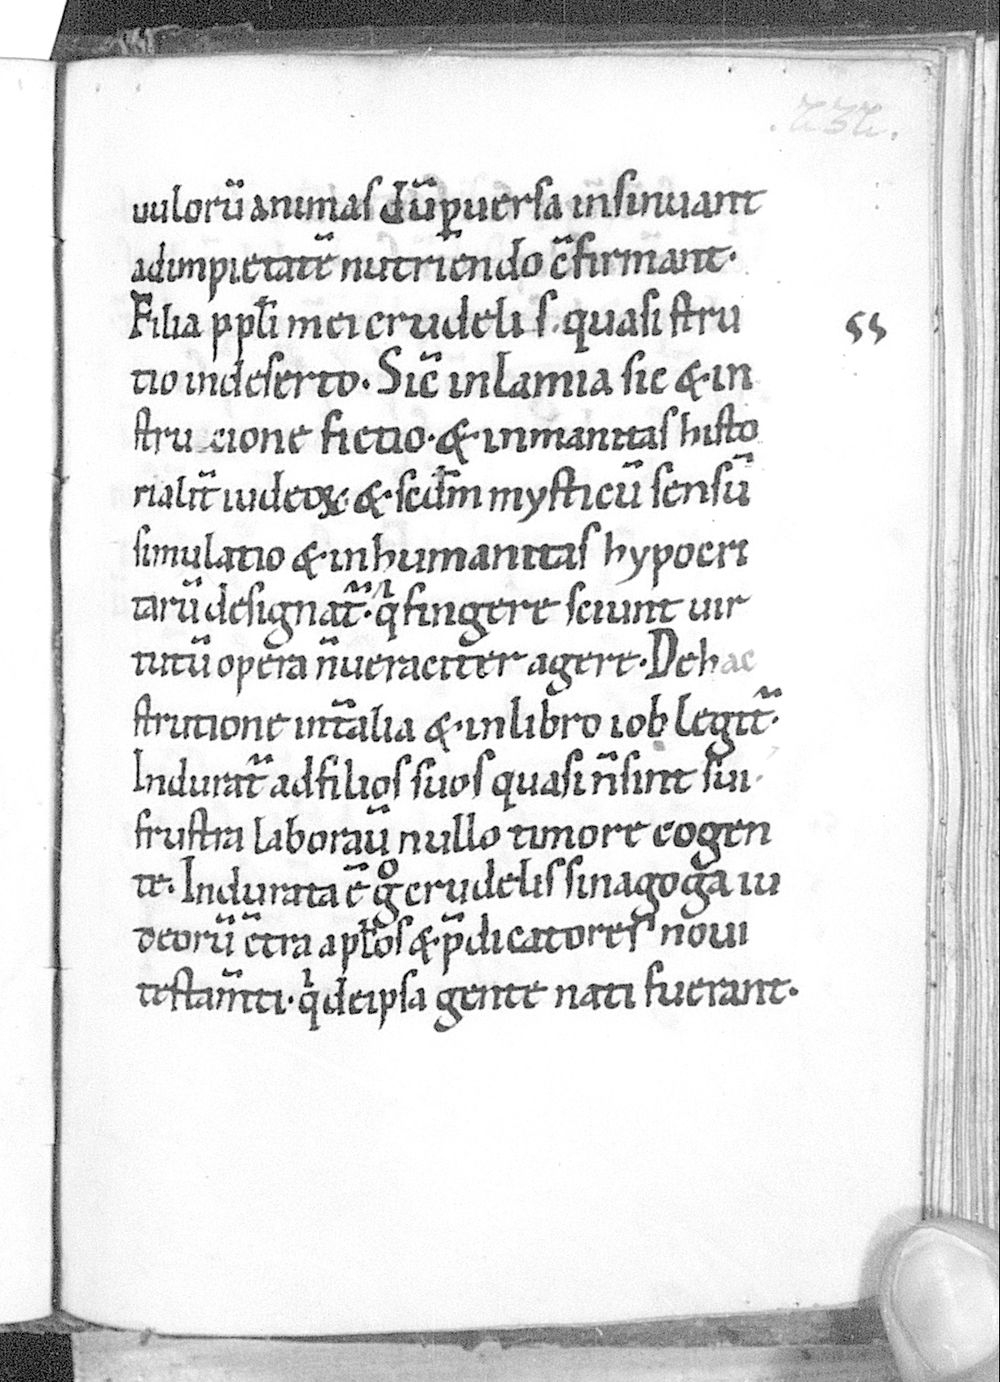 .232.
uulorū animas dū ꝑuersa insinuant
adimpietatē nutriendo c̄firmant·
Filia ppl̄i mei crudelis· quasi stru
tio indeserto· Sic̄ inlamia sic &· in
strucione fictio· &· inmanitas histo
rialit̄ iudeoꝝ &· scdm̄ mysticū sensū
simulatio &· inhumanitas hypocri
tarū designat̄· q̇ fingere sciunt uir
tutū opera n̄ ueraciter agere· Dehac
strutione int̄ alia &· inlibro iob legit̄·
Indurat̄ adfilios suos quasi n̄ sint sui·
frustra laborau̅ nullo timore cogen
te· Indurata ē gͦ crudelis sinagoga iu
deorū c̄tra apl̄os &· p̄dicatores noui
testam̄ti· q̇ deipsa gente nati fuerant·